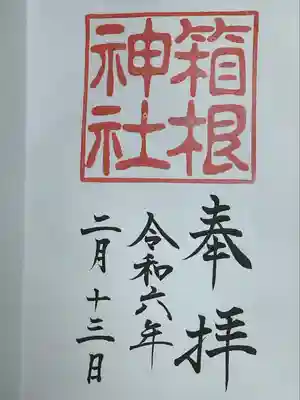 箱根
神社
奉拝
令和六年
二月十三日